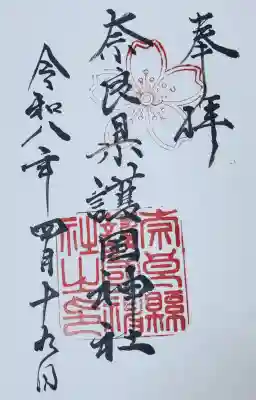 奉拝
奈良県護国神社
奈良縣護國神社之印
令和八年四月十九日